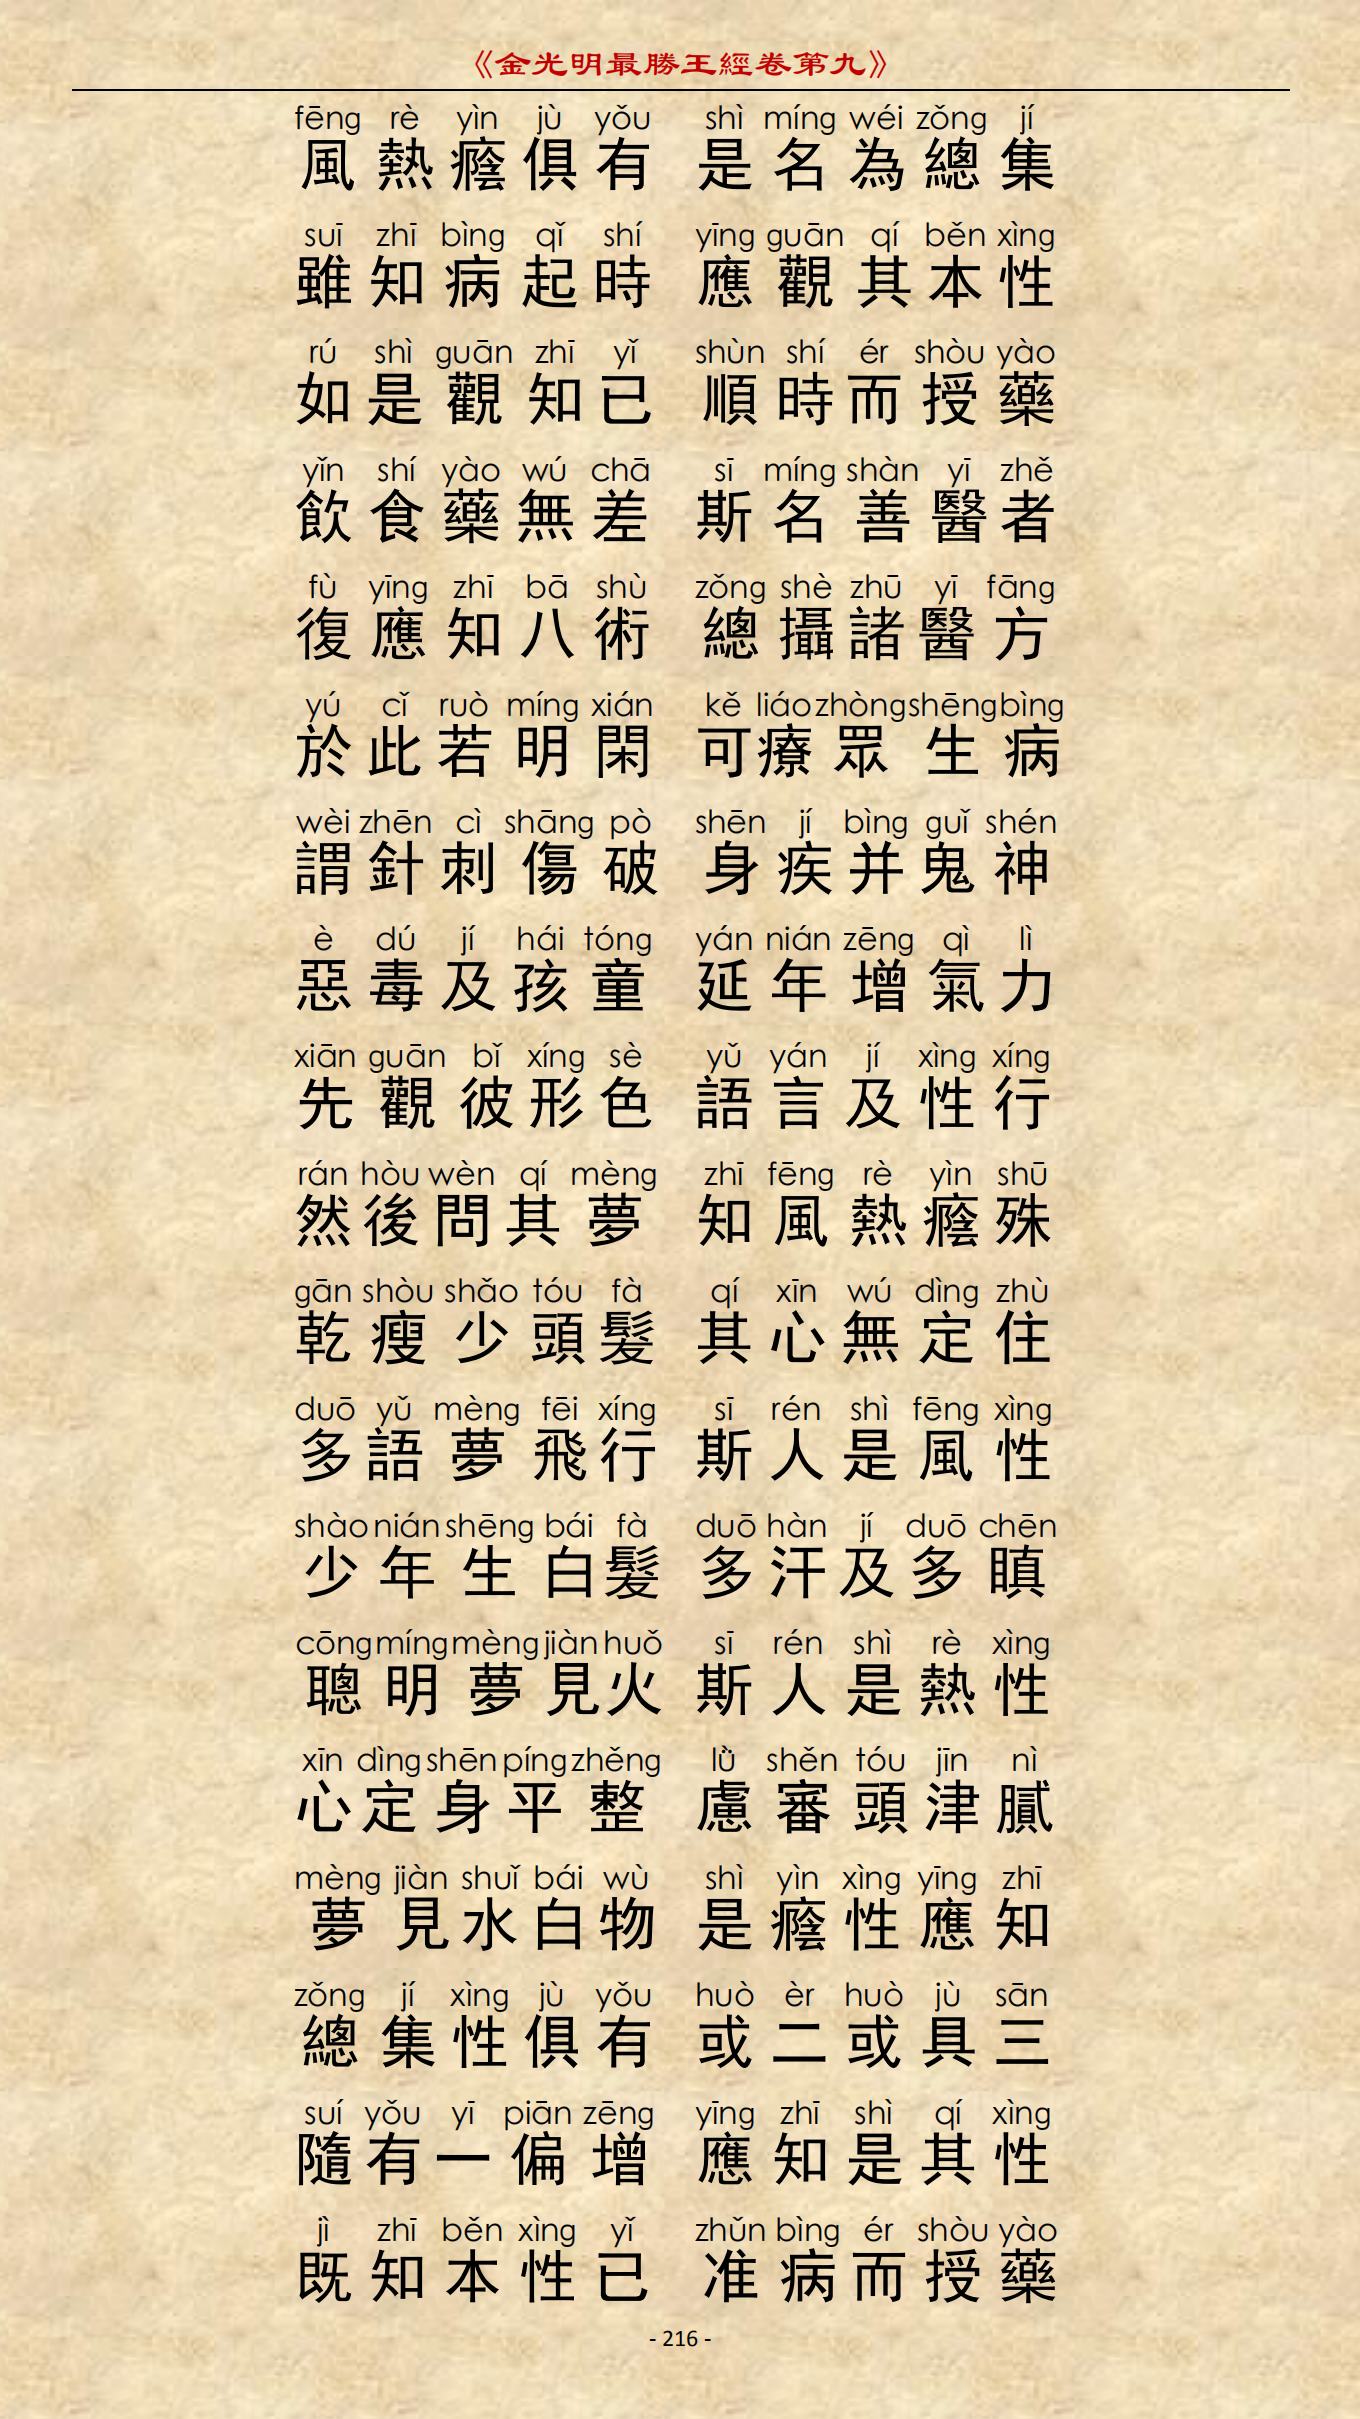 《金光明最勝王經卷第九》
fēng rè yìn jù yǒu shì míng wéi zǒng jí
風熱癊俱有 是名為總集
suī zhī bìng qǐ shí yīng guān qí běn xìng
雖知病起時 應觀其本性
rú shì guān zhī yǐ shùn shí ér shòu yào
如是觀知已 順時而授藥
yǐn shí yào wú chā sī míng shàn yī zhě
飲食藥無差 斯名善醫者
fù yīng zhī bā shù zǒng shè zhū yī fāng
復應知八術 總攝諸醫方
yú cǐ ruò míng xián kě liáo zhòng shēng bìng
於此若明閑 可療眾生病
wèi zhēn cì shāng pò shēn jí bìng guǐ shén
謂針刺傷破 身疾并鬼神
è dú jí hái tóng yán nián zēng qì lì
惡毒及孩童 延年增氣力
xiān guān bǐ xíng sè yǔ yán jí xìng xíng
先觀彼形色 語言及性行
rán hòu wèn qí mèng zhī fēng rè yìn shū
然後問其夢 知風熱癊殊
gān shòu shǎo tóu fà qí xīn wú dìng zhù
乾瘦少頭髮 其心無定住
duō yǔ mèng fēi xíng sī rén shì fēng xìng
多語夢飛行 斯人是風性
shào nián shēng bái fà duō hàn jí duō chēn
少年生白髮 多汗及多瞋
cōng míng mèng jiàn huǒ sī rén shì rè xìng
聰明夢見火 斯人是熱性
xīn dìng shēn píng zhěng lǜ shěn tóu jīn nì
心定身平整 慮審頭津膩
mèng jiàn shuǐ bái wù shì yìn xìng yīng zhī
夢見水白物 是癊性應知
zǒng jí xìng jù yǒu huò èr huò jù sān
總集性俱有 或二或具三
suí yǒu yī piān zēng yīng zhī shì qí xìng
隨有一偏增 應知是其性
jì zhī běn xìng yǐ zhǔn bìng ér shòu yào
既知本性已 准病而授藥
- 216 -